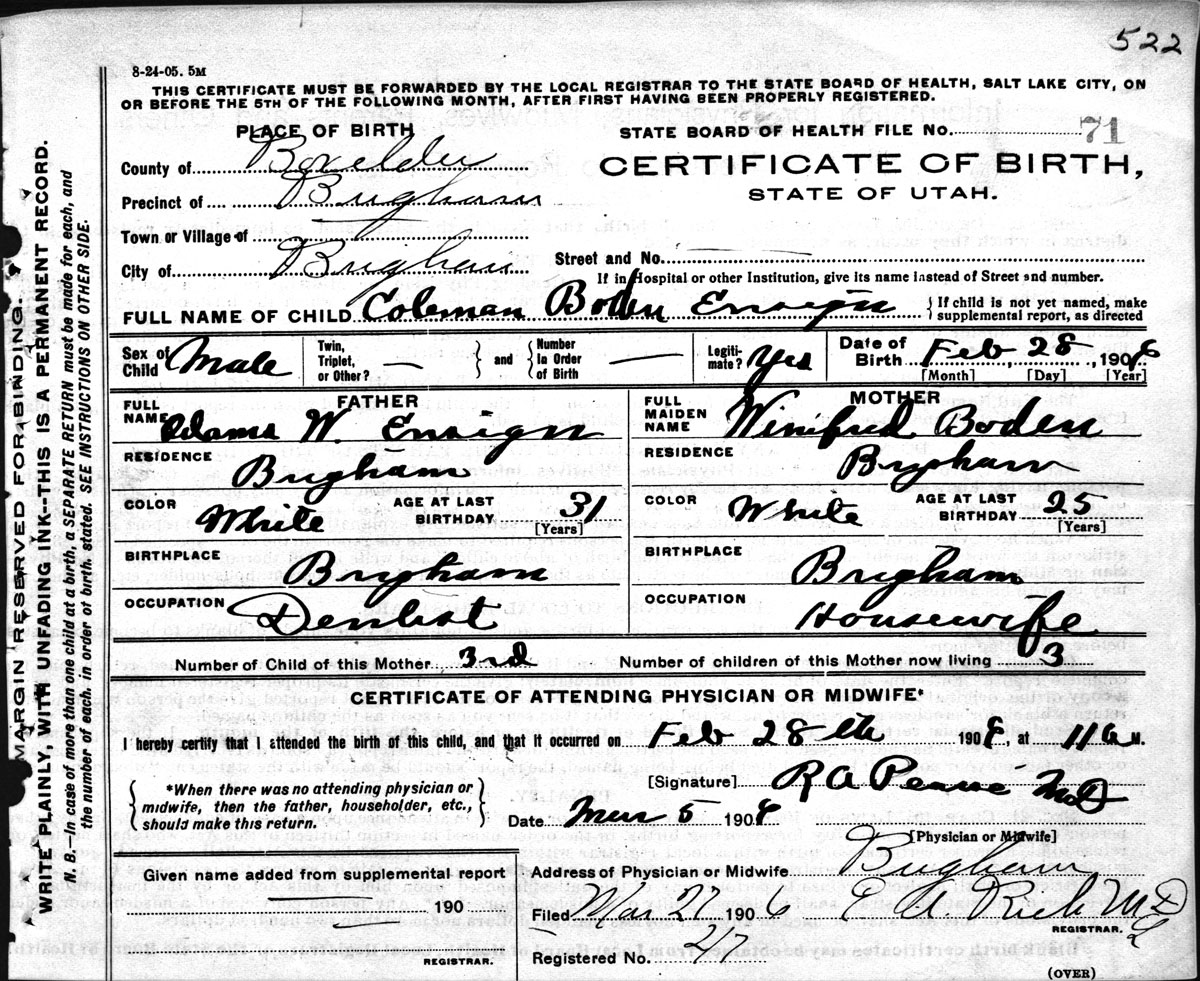 522
8-24-05. 5M
THIS CERTIFICATE MUST BE FORWARDED BY THE LOCAL REGISTRAR TO THE STATE BOARD OF HEALTH, SALT LAKE CITY, ON
OR BEFORE THE 5TH OF THE FOLLOWING MONTH, AFTER FIRST HAVING BEEN PROPERLY REGISTERED.
MARGIN RESERVED FOR BINDING.
WRITE PLAINLY, WITH UNFADING INK--THIS IS A PERMANENT RECORD.
N. B.—In case of more than one child at a birth, a SEPARATE RETURN must be made for each, and
the number of each, in order of birth, stated. SEE INSTRUCTIONS ON OTHER SIDE.
PLACE OF BIRTH
STATE BOARD OF HEALTH FILE No. 71
County of Boxelder
CERTIFICATE OF BIRTH,
STATE OF UTAH.
Precinct of Brigham
Town or Village of
City of Brigham
Street and No.
If in Hospital or other Institution, give its name instead of Street and number.
FULL NAME OF CHILD Coleman Boden Ensign
If child is not yet named, make
supplemental report, as directed
Sex of Child Male
Twin, Triplet, or Other? —
and
Number in Order of Birth —
Legitimate? Yes
Date of Birth Feb 28, 190
[Month] [Day] [Year]
FATHER
FULL NAME Adams W. Ensign
RESIDENCE Brigham
COLOR White AGE AT LAST BIRTHDAY 31
[Years]
BIRTHPLACE Brigham
OCCUPATION Dentist
MOTHER
FULL MAIDEN NAME Winifred Boden
RESIDENCE Brigham
COLOR White AGE AT LAST BIRTHDAY 25
[Years]
BIRTHPLACE Brigham
OCCUPATION Housewife
Number of Child of this Mother 3rd Number of children of this Mother now living 3
CERTIFICATE OF ATTENDING PHYSICIAN OR MIDWIFE*
I hereby certify that I attended the birth of this child, and that it occurred on Feb 28th 190 , at 11 a M.
*When there was no attending physician or
midwife, then the father, householder, etc.,
should make this return.
[Signature] R A Pearse MD
Date Mar 5 190
[Physician or Midwife]
Given name added from supplemental report
190
REGISTRAR.
Address of Physician or Midwife Brigham
Filed Mar 27 1906 Rich MD
REGISTRAR.
Registered No. 27
(OVER)